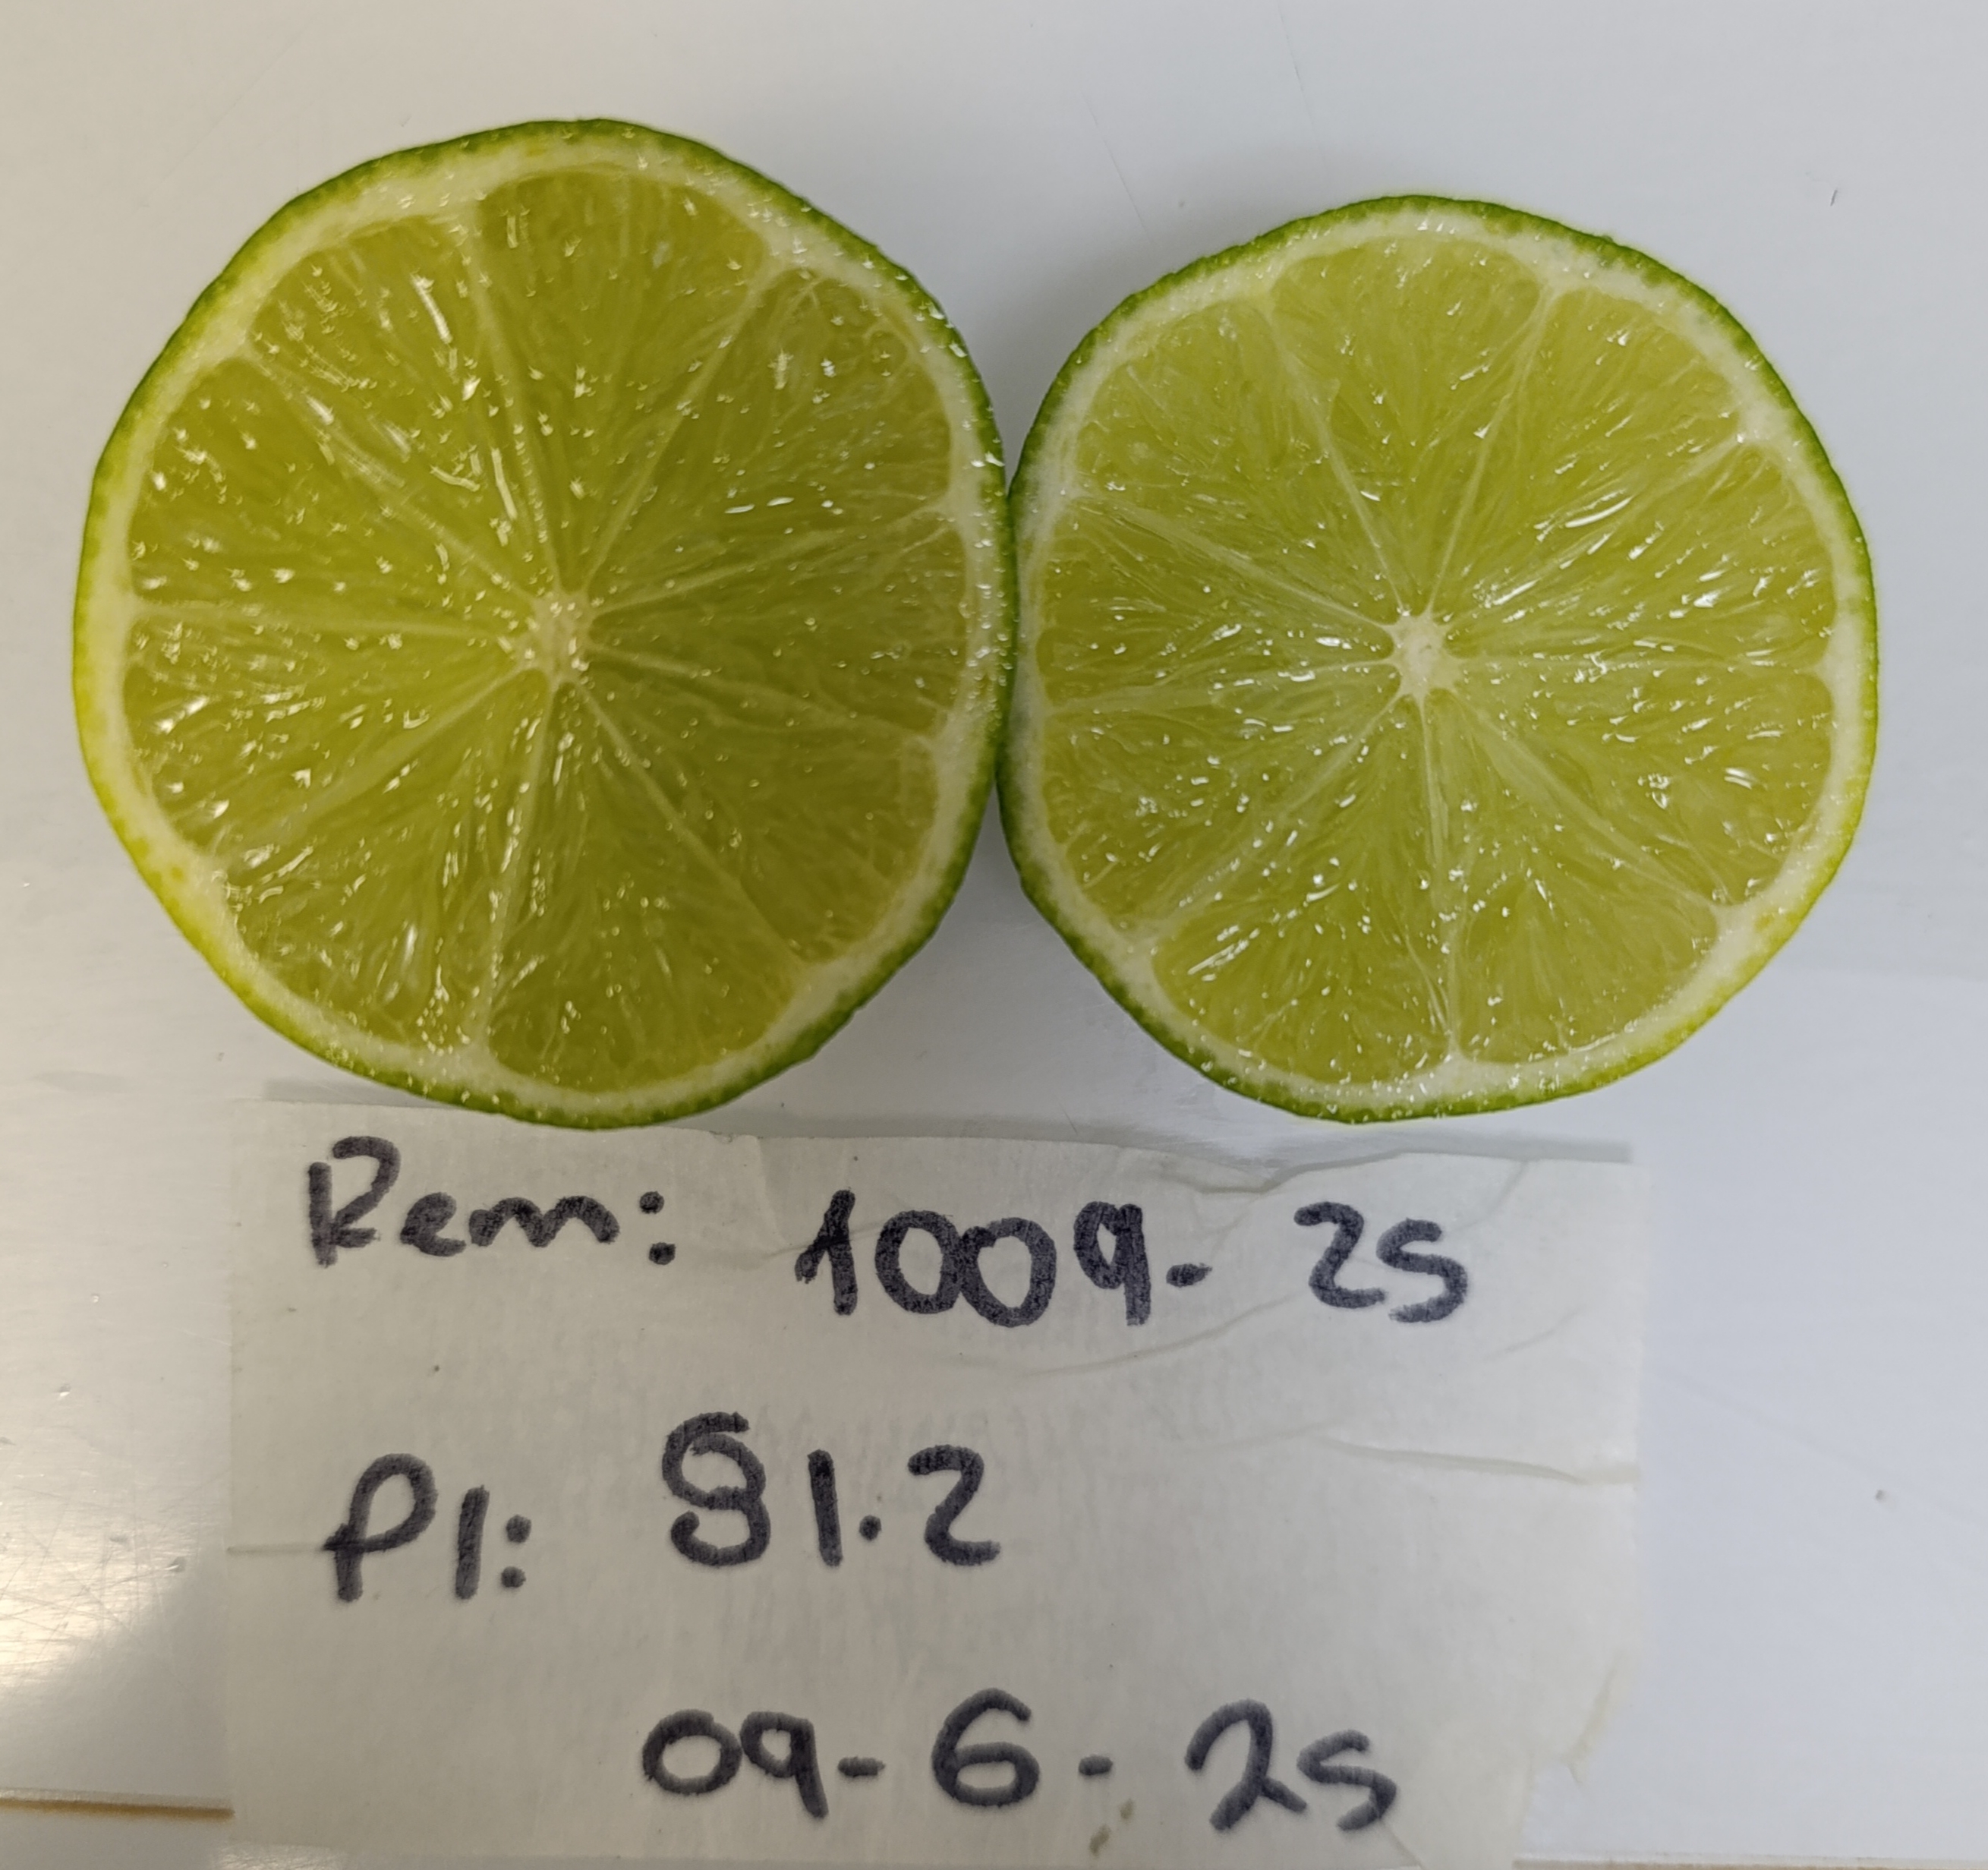 Rem: 1009-25
Pl: 81.2
09-6-25